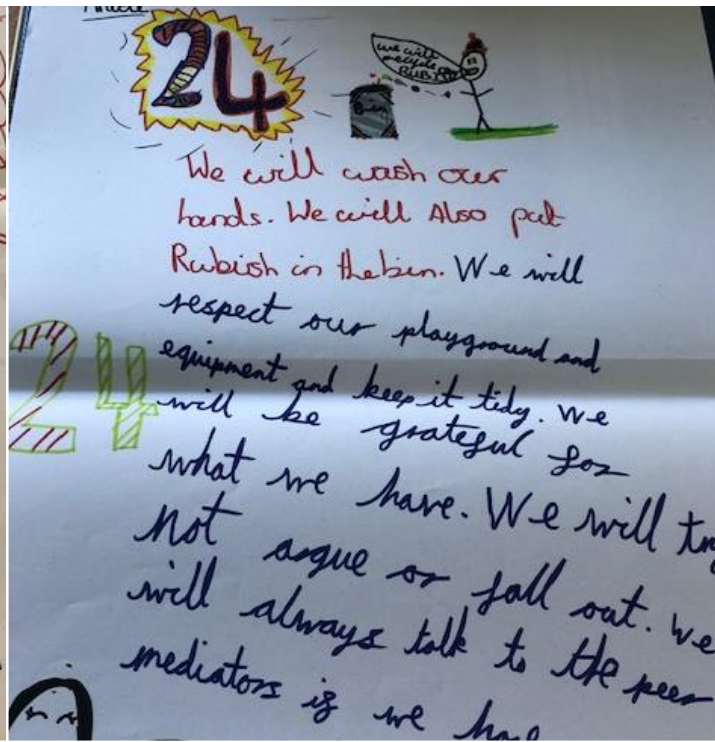 Article
24
we will
recycle
RUBI
Bin
We will wash our
hands. We will Also put
Rubish in the bin. We will
respect our playground and
equipment and keep it tidy. We
will be grateful for
24
what we have. We will try
not argue or fall out. We
will always talk to the peer
mediators if we have